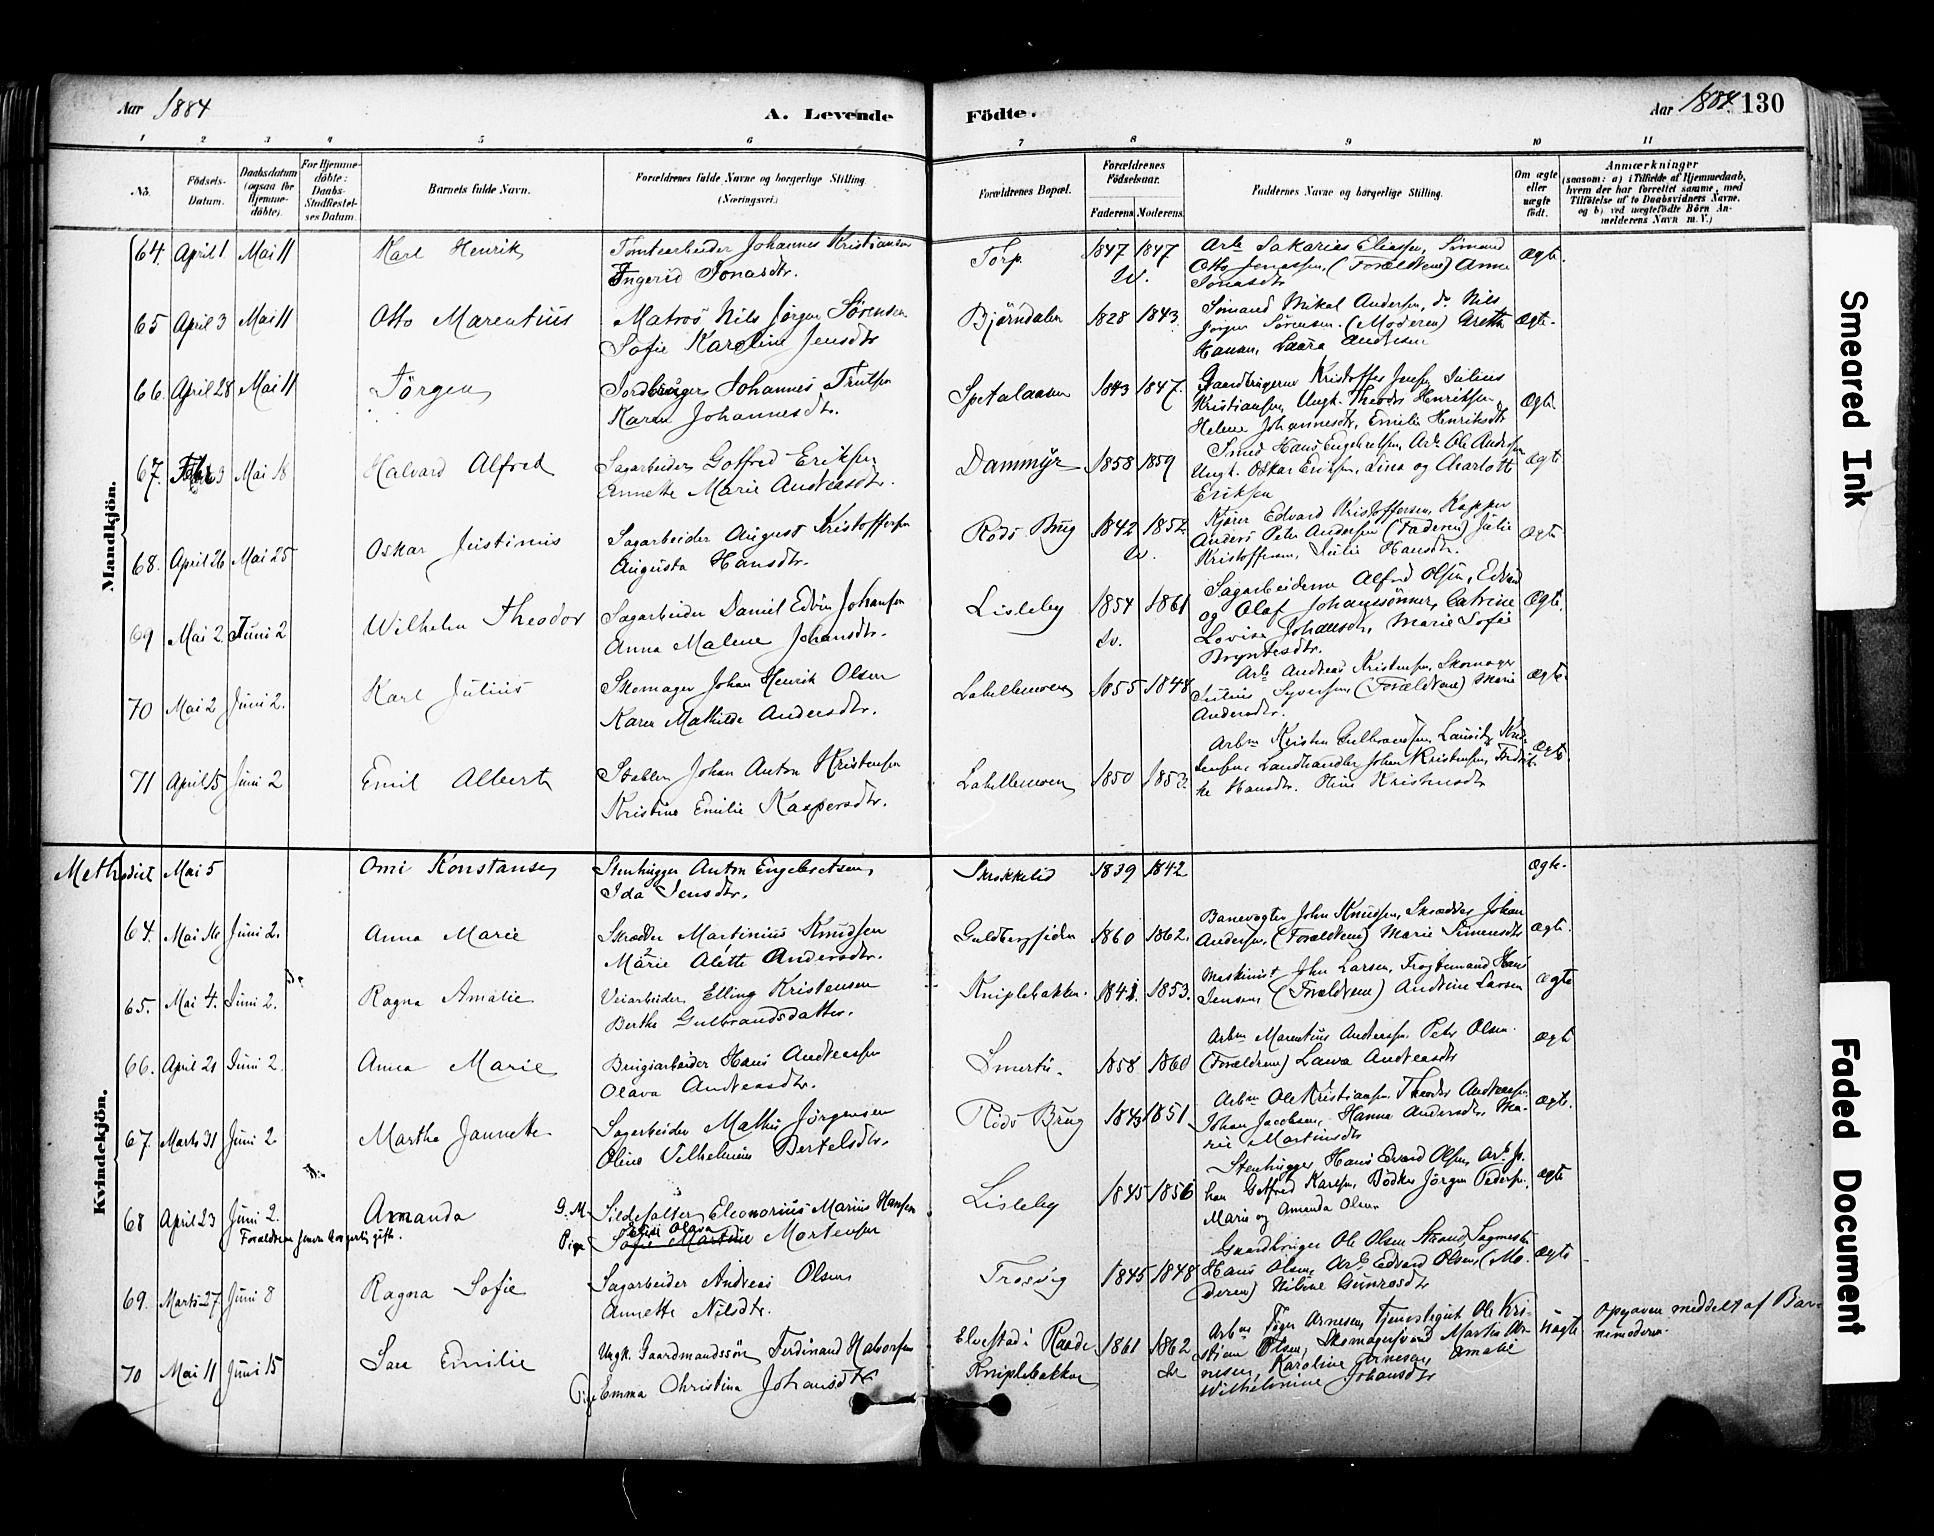 Aar 1884
A. Levende
Födte.
Aar 1884 130
1 2 3 4 5 6 7 8 9 10 11
No. Födsels-Datum. Daabsdatum (ogsaa for Hjemme-döbte). For Hjemme-döbte: Daabs-Stadfæstel-ses Datum. Barnets fulde Navn. Forældrenes fulde Navne og borgerlige Stilling. (Næringsvei.) Forældrenes Bopæl. Forældrenes Födselsaar. Faderens Moderens. Faddernes Navne og borgerlige Stilling. Om ægte eller uægte födt. Anmærkninger (saasom: a) i Tilfælde af Hjemmedaab, hvem der har forrettet samme, med Tilföielse af to Daabsvidners Navne, og b) ved uægtefödte Börn An-melderens Navn m. V.)
Mandkjön.
64. April 1. Mai 11 Karl Henrik Tomtearbeider Johannes Kristiansen Torp. 1847 1847 Arb. Sakarias Eliassen, Sömand Ægte.
Ingerid Jonasdtr. Otto Jonassen, (Forældrene) Anne
Jonasdtr
65 April 3 Mai 11 Otto Marentius Matros Nils Jørgen Sörensen Bjørndalen 1828 1843. Sömand Mikal Andersen, do Nils Ægte.
Sofie Karoline Jensdtr Jørgen Sørensen. (Moderen) Grethe
Hansen, Laura Andresen
66. April 28 Mai 11 Jörgen Jordbruger Johannes Trulsen Spetalaasen 1843 1847. Gaardbrugerne Kristoffer Jensen, Julius Ægte.
Karen Johannesdtr. Kristiansen, Ungk. Theodor Henriksen,
Helene Johannesdtr, Emilie Henriksdtr
67. Mai 18 Halvard Alfred Sagarbeider Gotfred Eriksen Dammyr 1858 1859 Smed Hans Engebretsen, Arb. Ole Andersen Ægte
Annette Marie Andreasdtr. Ungk. Oskar Eriksen, Lina og Charlotte
Eriksen
68. April 26 Mai 25 Oskar Justinus Sagarbeider August Kristoffersen Röds Brug 1842 1852 Kjører Edvard Kristoffersen, Ægte
Augusta Hansdtr. Anders Peter Andersen (Faderen) Julie
Kristoffersen, Julie Hansdtr.
69 Mai 2 Juni 2 Wilhelm Theodor Sagarbeider Daniel Edvin Johansen Lisleby 1854 1861 Sagarbeiderne Alfred Olsen, Edvard Ægte.
Anna Malene Johansdtr. og Olaf Johanssönner, Catrine
Lovise Johansdtr, Marie Sofie
Bryntesdtr.
70 Mai 2 Juni 2. Karl Julius Skomager Johan Henrik Olsen Labellemoen 1855 1848 Arb. Andreas Kristensen, Skomager Ægte.
Karen Mathilde Andersdtr. Julius Syversen, (Forældrene) Marie
Andersdtr.
71 April 15 Juni 2 Emil Albert Johan Anton Kristensen Labellemoen 1850 1853. Arbm Kristen Gulbrandsen, Lauritz Ægte
Kristine Emilie Kaspersdtr. Landhandler Johan Kristensen,
Hansdtr. Oline Kristensdtr
Methodist Mai 5 Omi Konstanse Stenhugger Anton Engebretsen, Skrokkelid 1839 1842 Ægte.
Ida Jensdtr.
Kvindekjön.
64. Mai 16 Juni 2. Anna Marie Skrædder Martinius Knudsen Guldbergsiden 1860 1862. Banevogter John Knudsen, Skrædder Johan Ægte.
Marie Alette Andersdtr. Andersen, (Forældrene) Marie Simensdtr
65. Mai 4. Juni 2. Ragna Amalie Veiarbeider Elling Kristensen Kniplebakken. 1841. 1853. Maskinist John Larsen, Fragtemand Hans Ægte
Berthe Gulbrandsdatter. Jensen, (Forældrene) Andrine Larsen
66. April 21 Juni 2. Anna Marie Brugsarbeider Hans Andreassen Smertu. 1858 1860 Arbm Marentius Andreassen, Peter Olsen. Ægte
Olava Andreasdtr. (Forældrene) Laura Andreasdtr
67. Marts 31 Juni 2 Martha Jannette Sagarbeider Mathis Jörgensen Röds Brug 1843 1851 Arbm Ole Kristiansen, Theodor Andreassen, Ægte.
Oline Vilhelmine Bertelsdtr. Johan Jacobsen, Hanna Andersdtr, Ma-
rie Martinsdtr
68 April 23 Juni 2. Amanda G. M. Sildesalter Eleonorius Marius Hansen Lisleby 1845 1856 Stenhugger Hans Edvard Olsen, Arb. Jo- Ægte
Forældrene senere borgerlig gifte. Pige Sofie Martine Elise Olava Mortensen han Gotfred Karlsen, Bødker Jörgen Pedersen,
Marie og Amanda Olsen
69. Marts 27 Juni 8 Ragna Sofie Sagarbeider Andreas Olsen Trosvig 1845 1848 Gaardbruger Ole Olsen Strand, Sagmester Ægte
Annette Nilsdtr. Hans Olsen, Arb. Edvard Olsen, (Mo-
deren) Heline Gunrosdtr
70 Mai 11 Juni 15 Sara Emilie Ungk. Gaardmandssön Ferdinand Halvorsen Elvestad i Raade 1861 1862 Arbm Tøger Arnesen, Tjenestegut Ole Kri- Uægte Opgaven meddelt af Bar-
Pige Emma Christina Johansdtr Kniplebakken stian Olsen, Skomagersvend Martin Ar- nemoderen.
nesen, Karoline Arnesen, Amalie
Wilhelmine Johansdtr
Smeared Ink
Faded Document